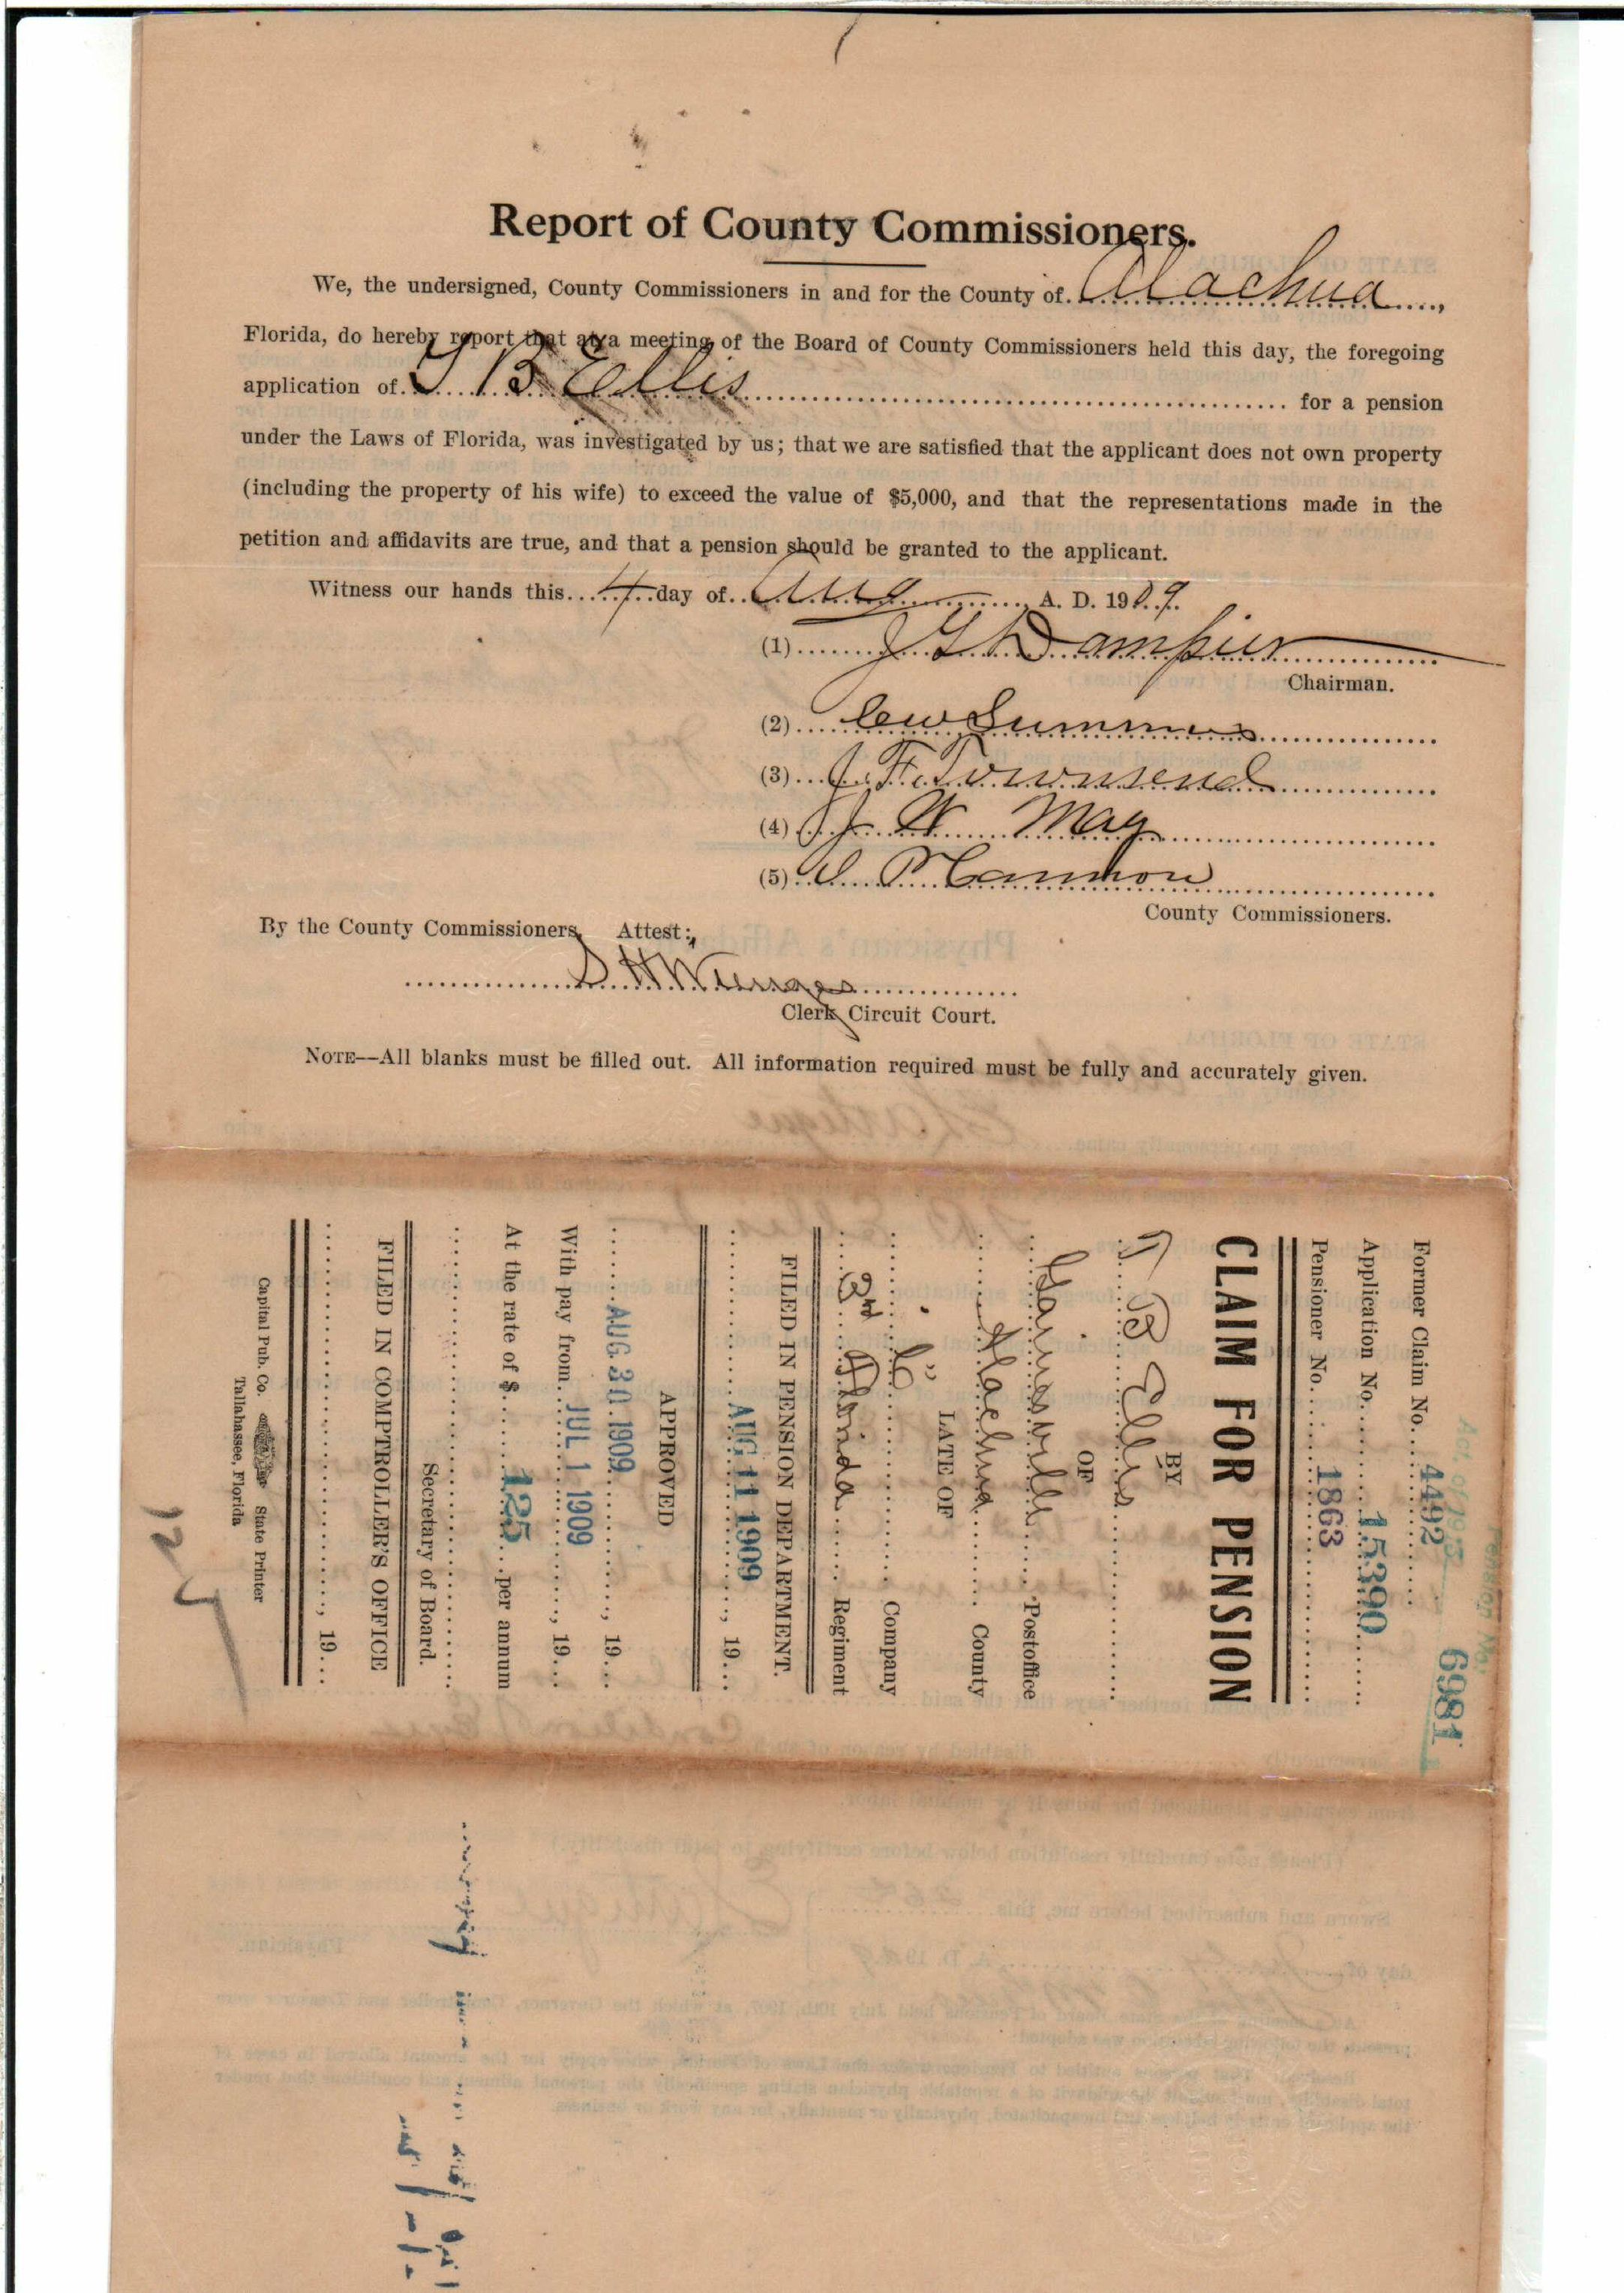 Report of County Commissioners.
We, the undersigned, County Commissioners in and for the County of Alachua,
Florida, do hereby report that at a meeting of the Board of County Commissioners held this day, the foregoing
application of T B Ellis for a pension
under the Laws of Florida, was investigated by us; that we are satisfied that the applicant does not own property
(including the property of his wife) to exceed the value of $5,000, and that the representations made in the
petition and affidavits are true, and that a pension should be granted to the applicant.
Witness our hands this 4 day of Aug A. D. 1909.
(1) J G Dampier
Chairman.
(2) C W Summers
(3) J. F. Townsend
(4) J W May
(5) D P Cannon
County Commissioners.
By the County Commissioners. Attest:
S H Wienges
Clerk Circuit Court.
NOTE—All blanks must be filled out. All information required must be fully and accurately given.
Act. of 1913 Pension No. 6981
Former Claim No. 4492
Application No. 15390
Pensioner No. 1863
CLAIM FOR PENSION
BY
T B Ellis
OF
Gainesville Postoffice
Alachua County
LATE OF
"C" Company
3rd Florida Regiment
FILED IN PENSION DEPARTMENT.
AUG 11 1909, 19
APPROVED
AUG 30 1909, 19
With pay from JUL 1 1909, 19
At the rate of $ 125 per annum
Secretary of Board.
FILED IN COMPTROLLER'S OFFICE
, 19
Capital Pub. Co. State Printer
Tallahassee, Florida
125